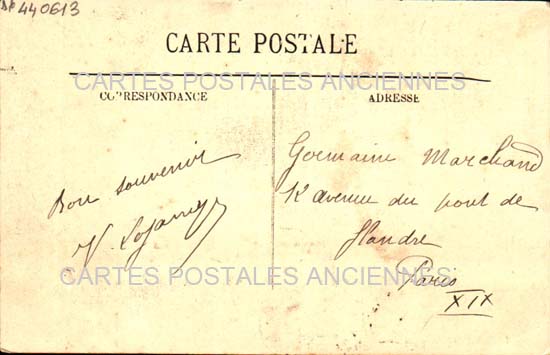 440613
CARTE POSTALE
CARTES POSTALES ANCIENNES
CORRESPONDANCE
ADRESSE
Bon souvenir
Germaine Marchand
12 avenue du pont de
flandre
Paris
XIX
CARTES POSTALES ANCIENNES